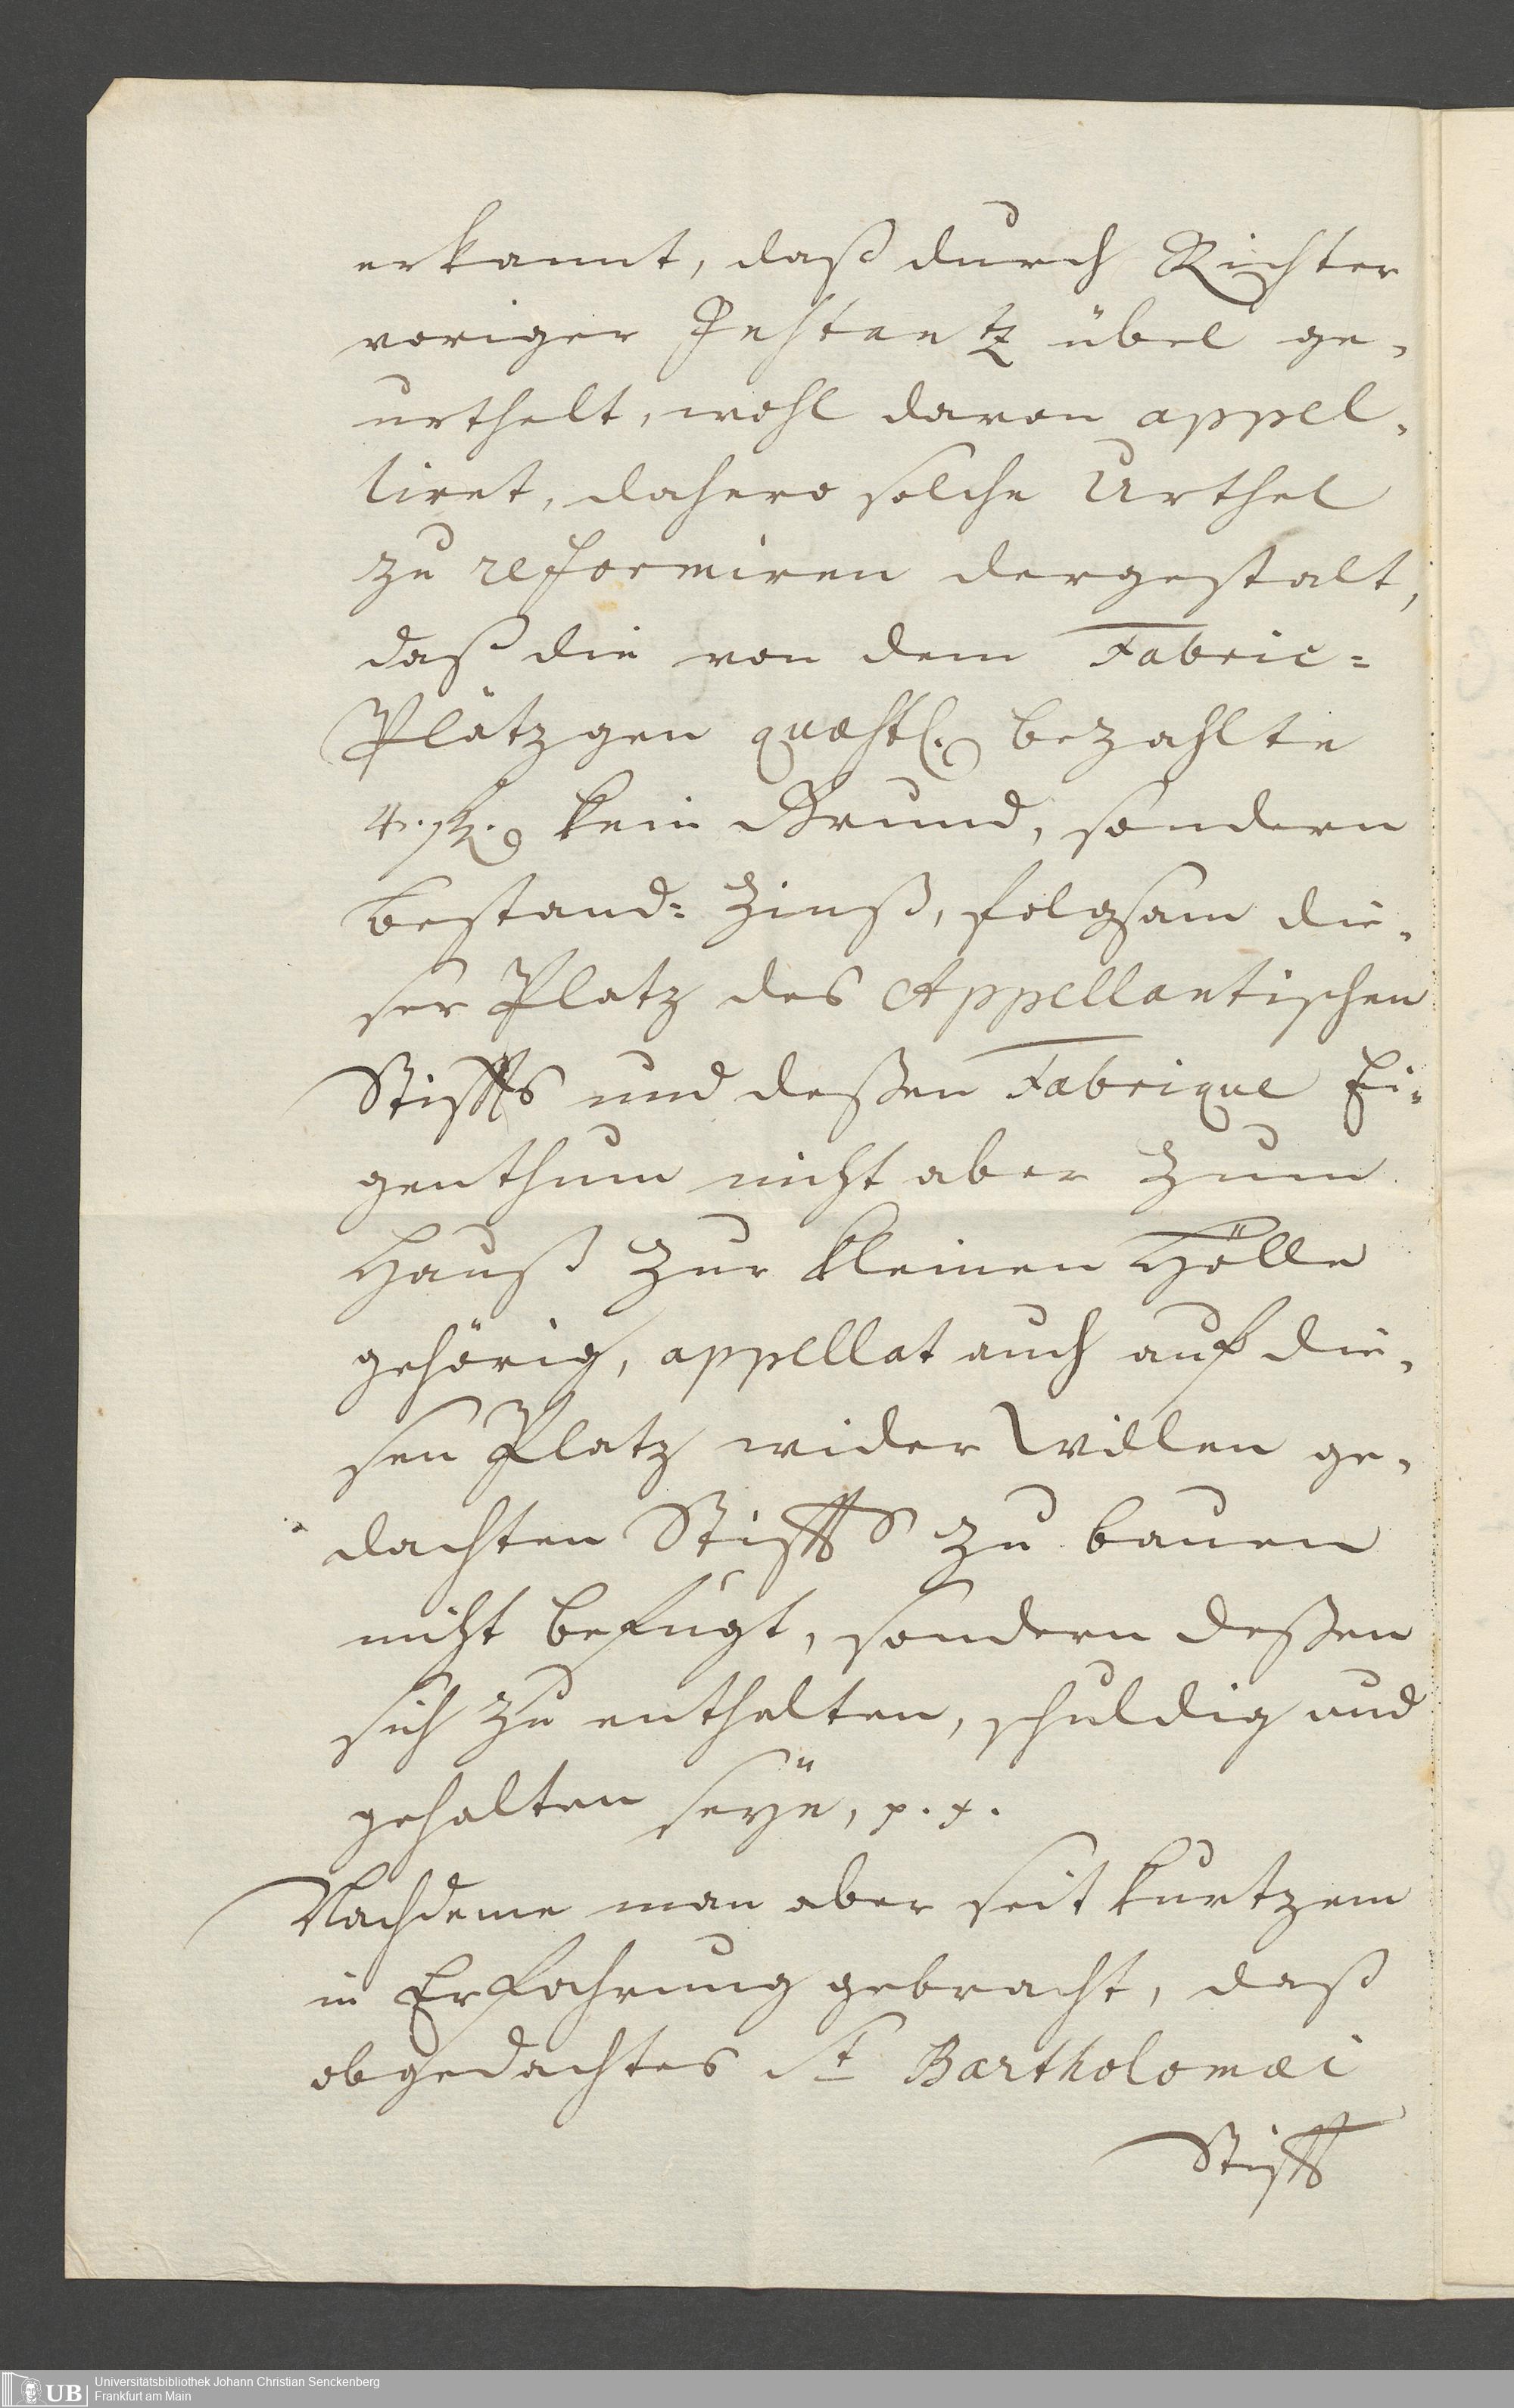 erkannt, daß durch Richter
voriger Instantz übel ge-
urthelt, wohl davon appel-
liret, dahero solche Urthel
zu reformiren dergestalt,
daß die von dem Fabric=
Plätzgen quæstl. bezahlte
4. ß. kein Grund, sondern
Bestand= Zinß, folgsam die-
ser Platz des Appellantischen
Stiffts und deßen Fabrique Ei-
genthum nicht aber zum
Hauß zur kleinen Hölle
gehörig, appellat auch auf die-
sen Platz wider Willen ge-
dachten Stiffts zu bauen
nicht befugt, sondern deßen
sich zu enthalten, schuldig und
gehalten seye, p. p.
Nachdeme man aber seit kurtzem
in Erfahrung gebracht, daß
obgedachtes St Bartholomæi
Stifft
UB
Universitätsbibliothek Johann Christian Senckenberg
Frankfurt am Main